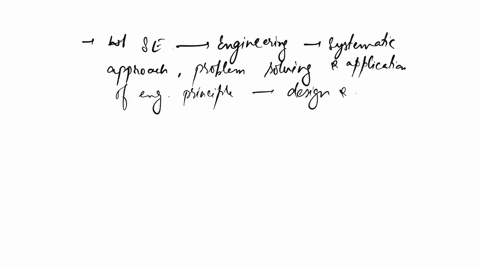 → but SE → Engineering → Systematic
approach, problem solving & application
of eng. principle → design &